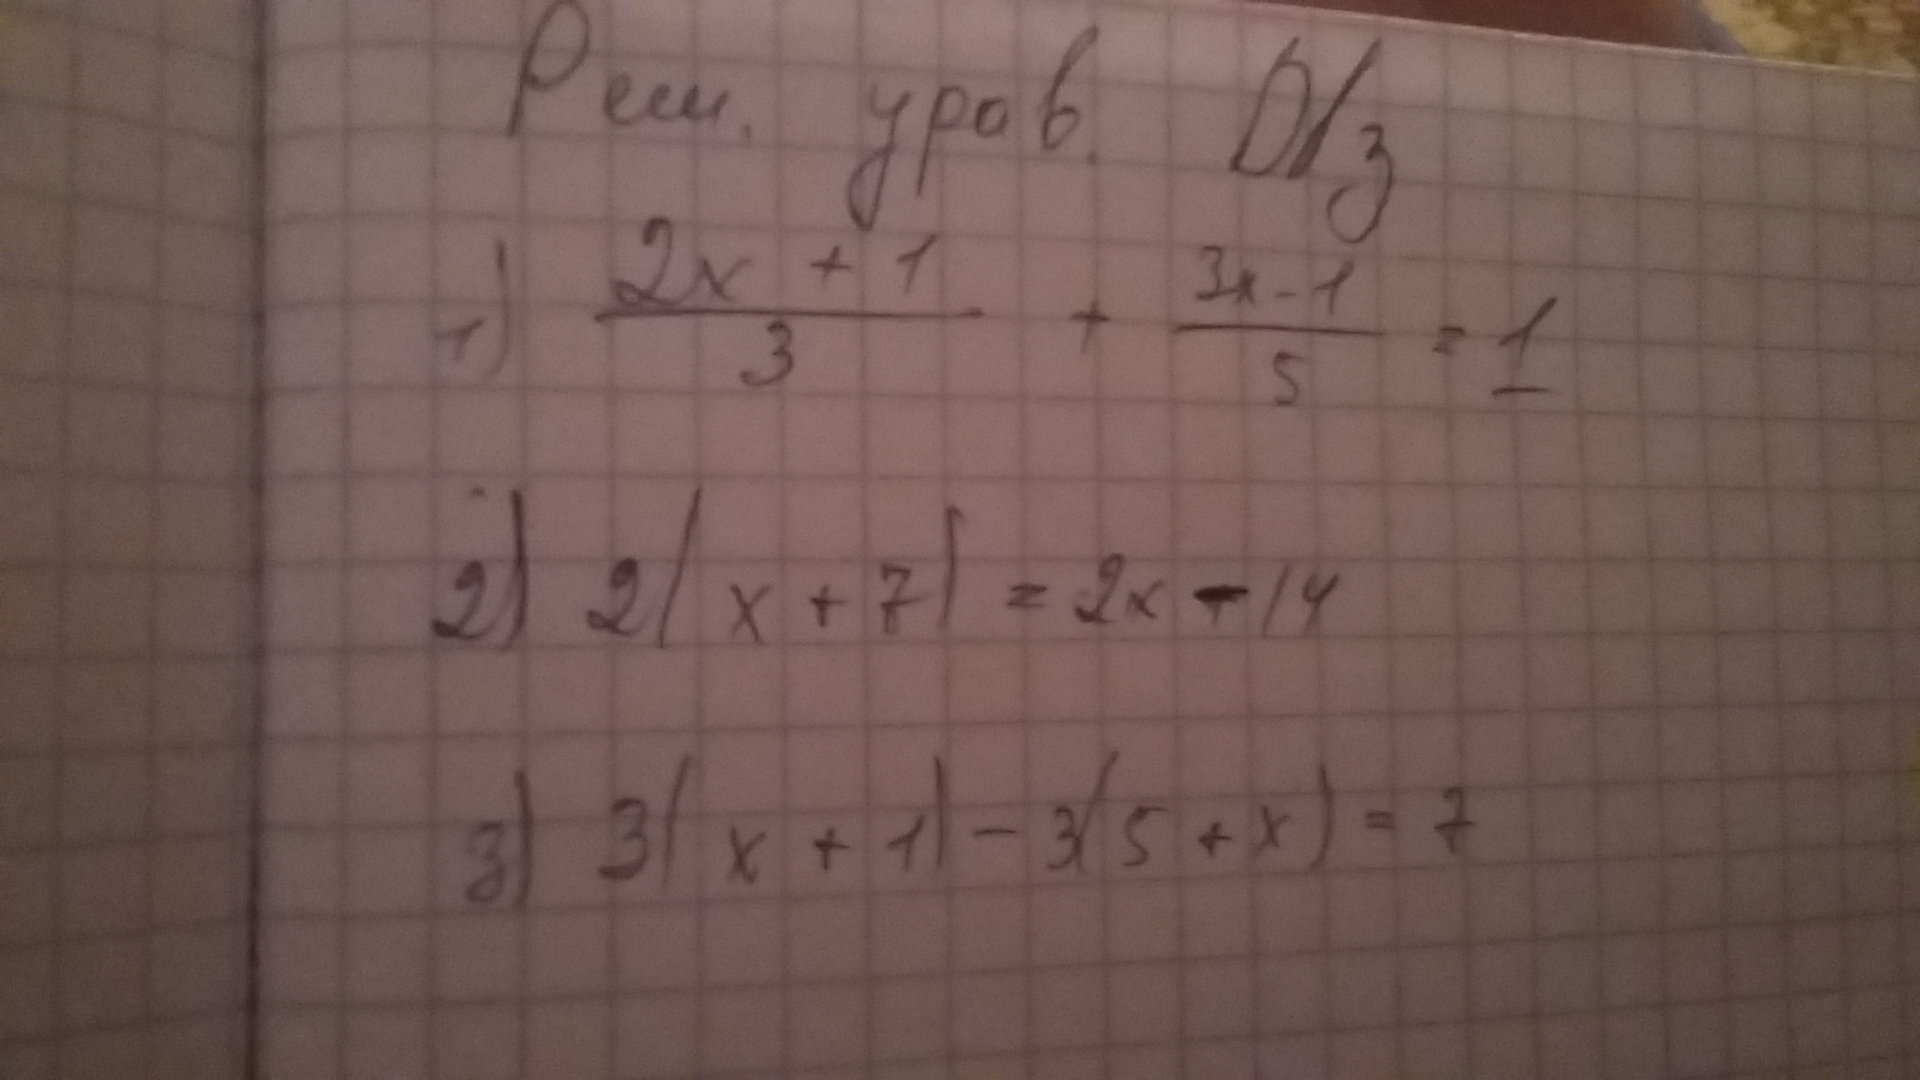 Реш. урав. D/з
1) (2x + 1)/3 + (3x - 1)/5 = 1
2) 2(x + 7) = 2x - 14
3) 3(x + 1) - 3(5 + x) = 7